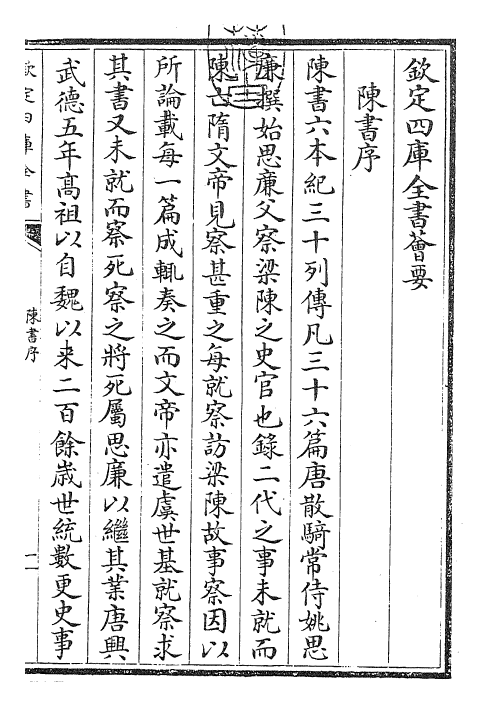 欽定四庫全書薈要
陳書序
陳書六本紀三十列傳凡三十六篇唐散騎常侍姚思
廉撰始思廉父察梁陳之史官也錄二代之事未就而
陳亡隋文帝見察甚重之每就察訪梁陳故事察因以
所論載每一篇成輒奏之而文帝亦遣虞世基就察求
其書又未就而察死察之將死屬思廉以繼其業唐興
武德五年髙祖以自魏以来二百餘歳世統數更史事
欽定四庫全書
陳書序
一